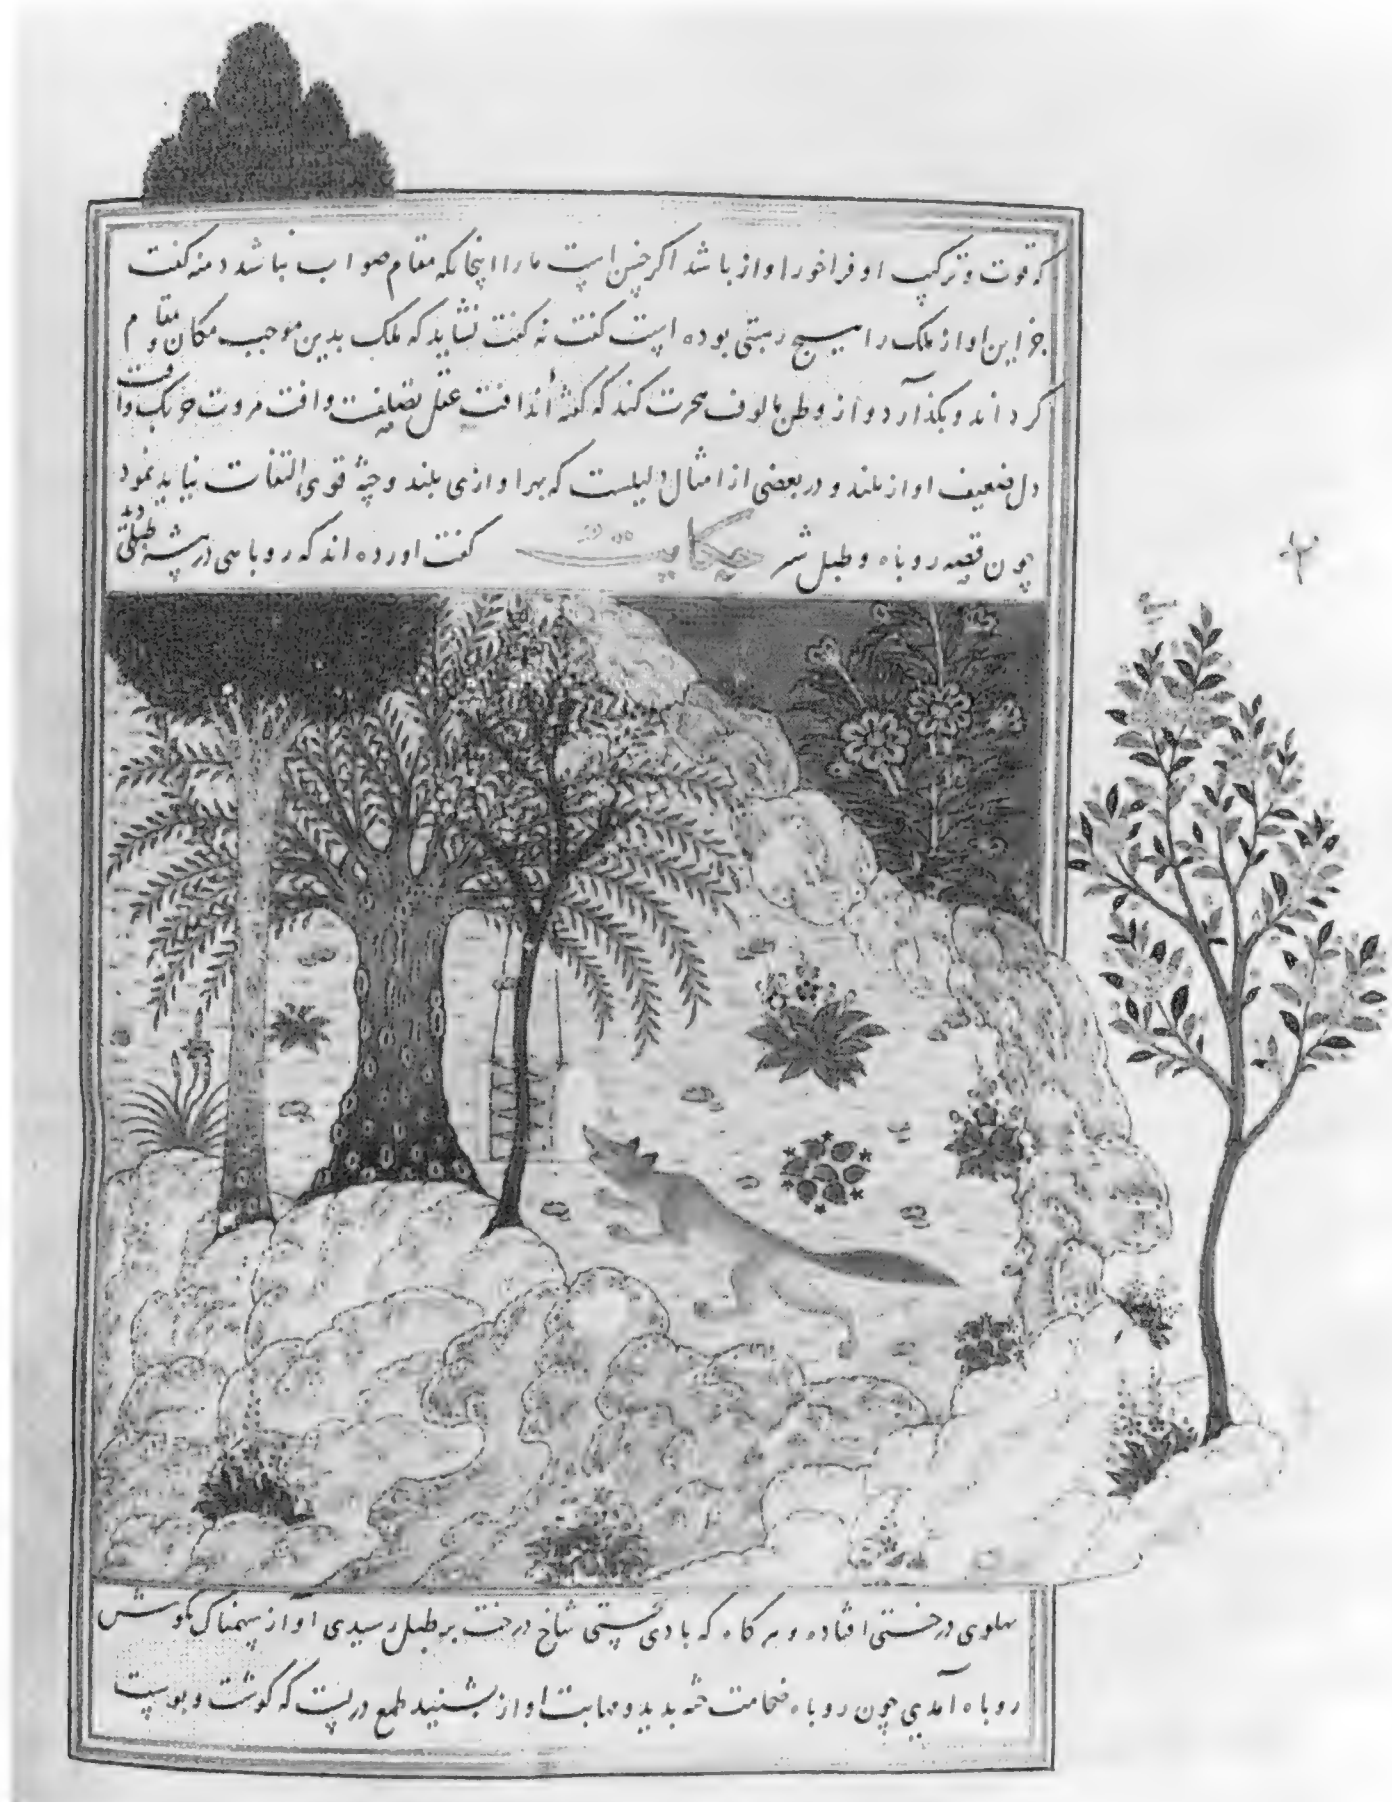 که قوت و ترکیب او فراخور اواز باشد اکر چنین است ما را اینجایکه مقام صواب نباشد دمنه کفت
جز این اواز ملک را هیچ ریبتی بوده است کفت نه کفت نشاید که ملک بدین موجب مکان و مقام
کرداند و بکذارد و از وطن مالوف هجرت کند که کفته‌اند افت عقل تصلفست و افت مروت چربک و افت
دل ضعیف اواز بلند و در بعضی از امثال دلیلست که بهر اوازی بلند و جثه قوی التفات نباید نمود
چون قصه روباه و طبل شیر حکایت کفت اورده اند که روباهی در بیشه رفت طبلی دید
پهلوی درختی افتاده و هر کاه که بادی بجستی شاخ درخت بر طبل رسیدی آواز سهمناک بکوش
روباه آمدی چون روباه ضخامت جثه بدید و مهابت اواز بشنید طمع دربست که کوشت و پوست